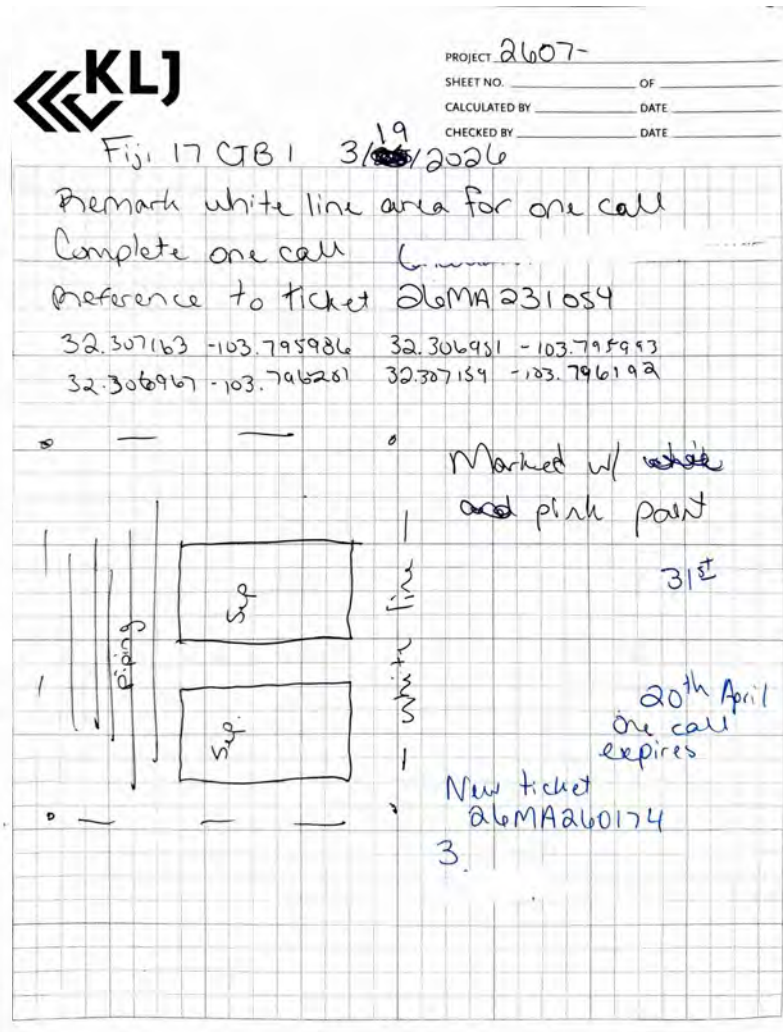 KLJ
PROJECT 2607-
SHEET NO. OF
CALCULATED BY DATE
CHECKED BY DATE
Fiji 17 CTB 1 3/19/2026
Remark white line area for one call
Complete one call
Reference to ticket 26MA231054
32.307163 -103.795986 32.306951 -103.795993
32.306967 -103.796201 32.307159 -103.796192
Marked w/
and pink paint
31st
Sep
piping
white line
Sep.
20th April
one call
expires
New ticket
26MA260174
3.